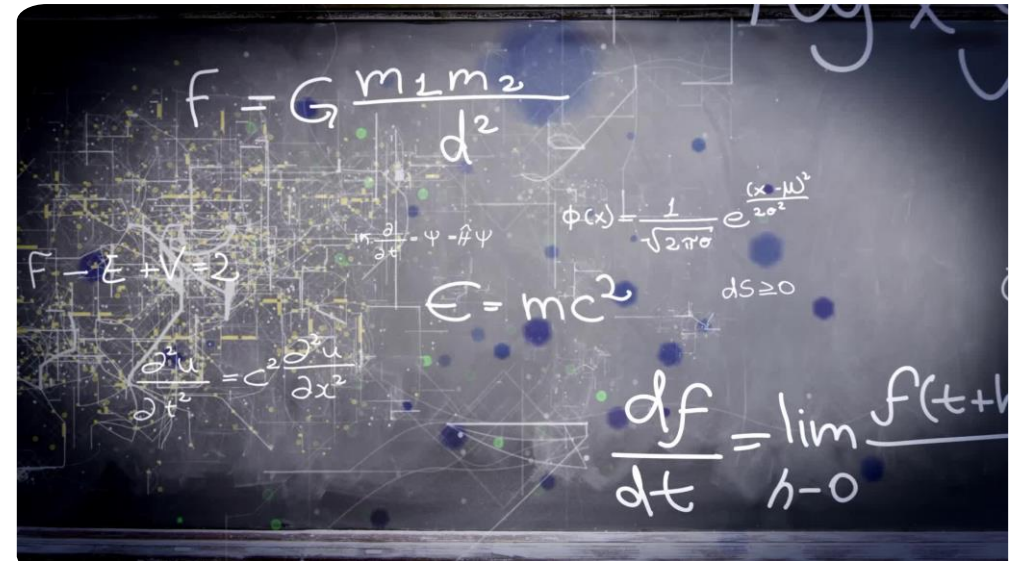 log x y
F = G m1m2 / d²
Φ(x) = 1 / √2πσ e (x-μ)² / 2σ²
∂ / ∂t - Ψ = ĤΨ
F - E + V = 2
E = mc²
dS ≥ 0
∂²u / ∂t² = c² ∂²u / ∂x²
df / dt = lim h-0 f(t+h